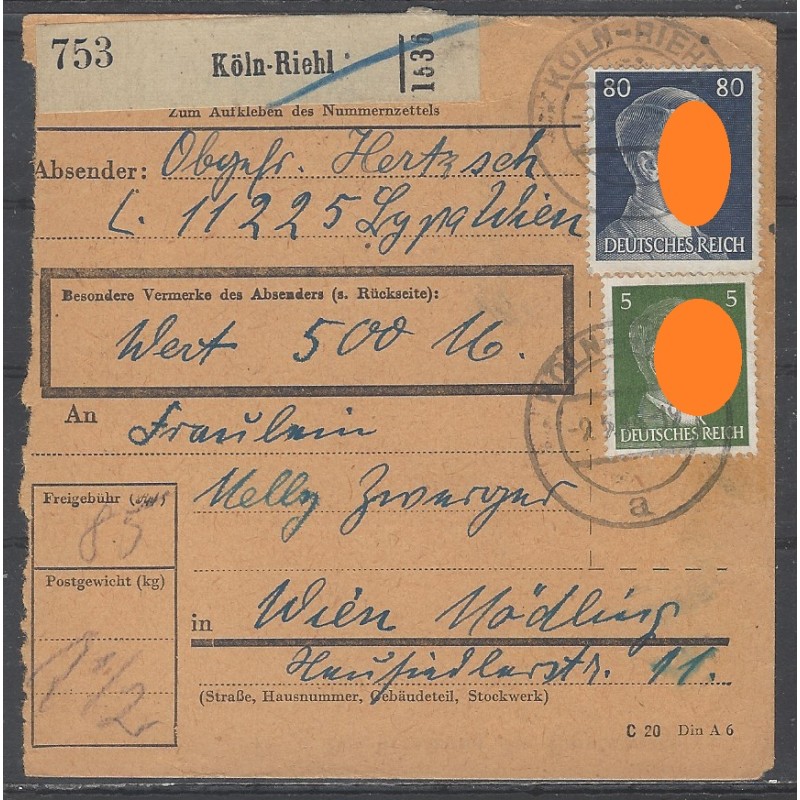 753 Köln-Riehl 1536
Zum Aufkleben des Nummernzettels
KÖLN-RIEHL
80 80
DEUTSCHES REICH
Absender: Obgefr. Hertzsch
L. 11225 Lgpa Wien
Besondere Vermerke des Absenders (s. Rückseite):
Wert 500 M.
5 5
DEUTSCHES REICH
KÖLN-
a
An Fräulein
Melly Zwerger
Freigebühr
85
Postgewicht (kg)
in Wien Mödling
Neusiedlerstr. 11.
(Straße, Hausnummer, Gebäudeteil, Stockwerk)
C 20 Din A 6